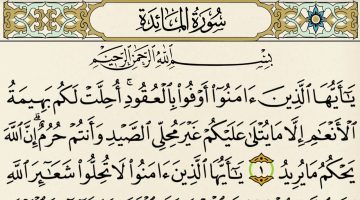 سُورَةُ المَائِدَةِ
بِسْمِ اللَّهِ الرَّحْمَٰنِ الرَّحِيمِ
يَٰٓأَيُّهَا ٱلَّذِينَ ءَامَنُوٓا۟ أَوْفُوا۟ بِٱلْعُقُودِ ۚ أُحِلَّتْ لَكُم بَهِيمَةُ
ٱلْأَنْعَٰمِ إِلَّا مَا يُتْلَىٰ عَلَيْكُمْ غَيْرَ مُحِلِّى ٱلصَّيْدِ وَأَنتُمْ حُرُمٌ ۗ إِنَّ ٱللَّهَ
يَحْكُمُ مَا يُرِيدُ ١ يَٰٓأَيُّهَا ٱلَّذِينَ ءَامَنُوا۟ لَا تُحِلُّوا۟ شَعَٰٓئِرَ ٱللَّهِ